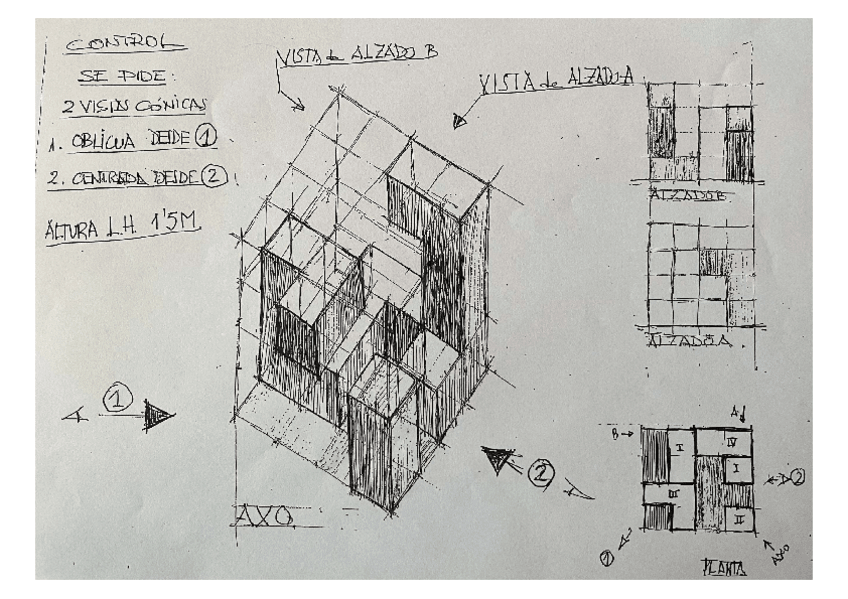 CONTROL
SE PIDE:
2 VISTAS CÓNICAS
1. OBLÍCUA DESDE 1
2. CENTRADA DESDE 2
ALTURA L.H. 1'5M
VISTA de ALZADO B
VISTA de ALZADO A
ALZADO B
ALZADO A
1
2
AXO
A
B
I
IV
I
III
II
2
1
AXO
PLANTA